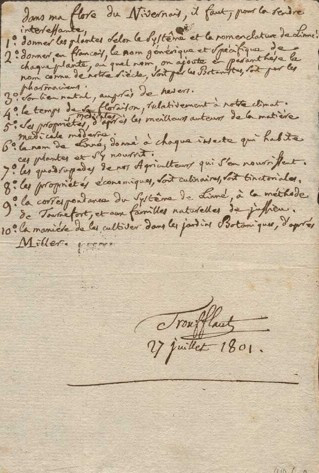 dans ma flore du Nivernois, il faut, pour la rendre
interessante,
1.° donner les plantes selon le systême et la nomenclature de Linné.
2.° donner en francois, le nom générique et spécifique de
chaque plante, au quel nom, on ajoute en parenthese le
nom connu de notre siécle, soit par les Botanistes, soit par les
pharmaciens.
3.° son lieu natal, auprès de nevers.
4.° le temps de sa floraison, relativement à notre climat.
5.° ses propriétés médicales, d'après les meilleurs auteurs de la matière
médicale moderne.
6.° le nom de Linné, donné à chaque insecte qui habite
ces plantes et s'y nourrit.
7.° les quadrupedes de nos Agriculteurs qui s'en nourrissent.
8.° les propriétés économiques, soit culinaires, soit tinctoriales.
9.° la correspondance du Systême de Linné, à la méthode
de Tournefort, et aux familles naturelles de jussieu.
10.° la maniére de les cultiver dans les jardins Botaniques, d'après
Miller.
Troufflaut
27 juillet 1801.